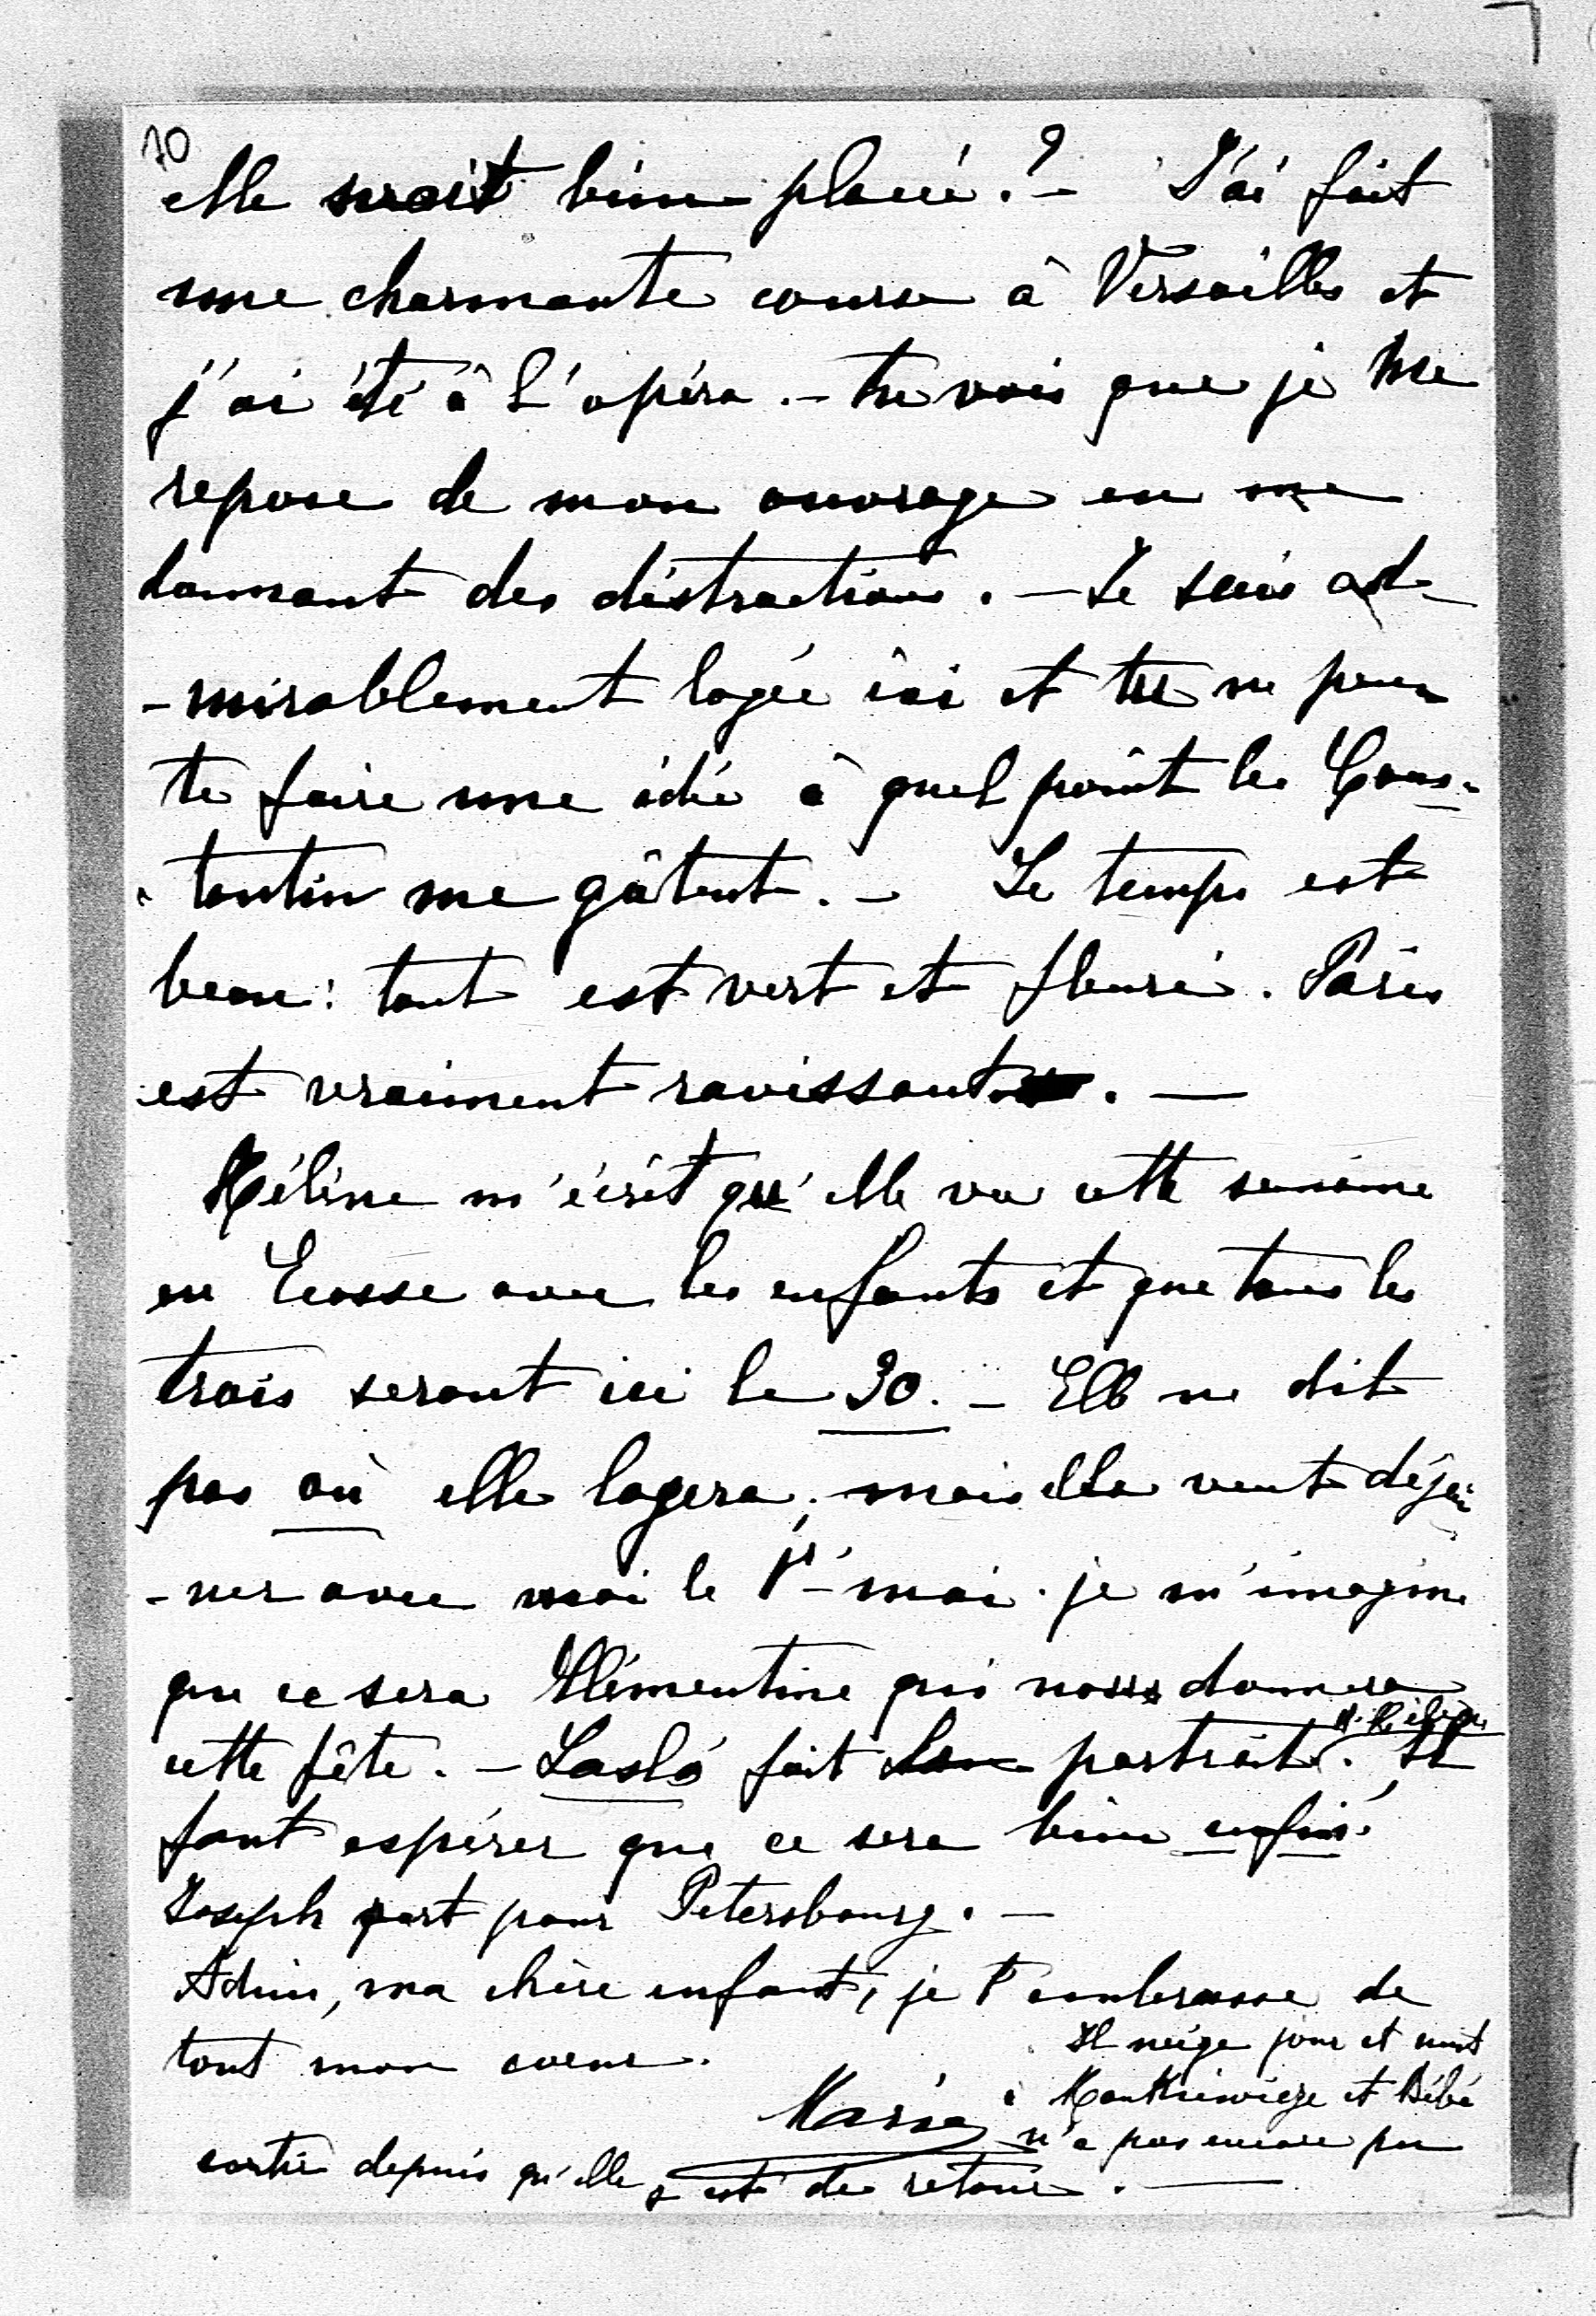 10
elle serait bien placée ? – J'ai fait
une charmante course à Versailles et
j'ai été à L'opéra. – tu vois que je me
repose de mon ouvrage en me
donnant des distractions. – Je suis ad-
-mirablement logée ici et tu ne peux
te faire une idée à quel point les Cons-
-tantin me gâtent. – Le temps est
beau : tout est vert et fleuri. Paris
est vraiment ravissant. —
Hélène m'écrit qu'elle va cette semaine
en Ecosse avec les enfants et que tous les
trois seront ici le 30. – Elle ne dit
pas où elle logera; mais elle veut déjeu
-ner avec moi le 1r mai. je m'imagine
que ce sera Clémentine qui nous donnera
cette fête. – Lasló fait portrait. Il
faut espérer que ce sera bien enfin.
Joseph part pour Petersbourg. –
Adieu, ma chère enfant, je t'embrasse de
tout mon coeur.
Maria
Il neige jour et nuit
à et Bébé
n'a pas encore pu
sortir depuis qu'elle est de retour. —